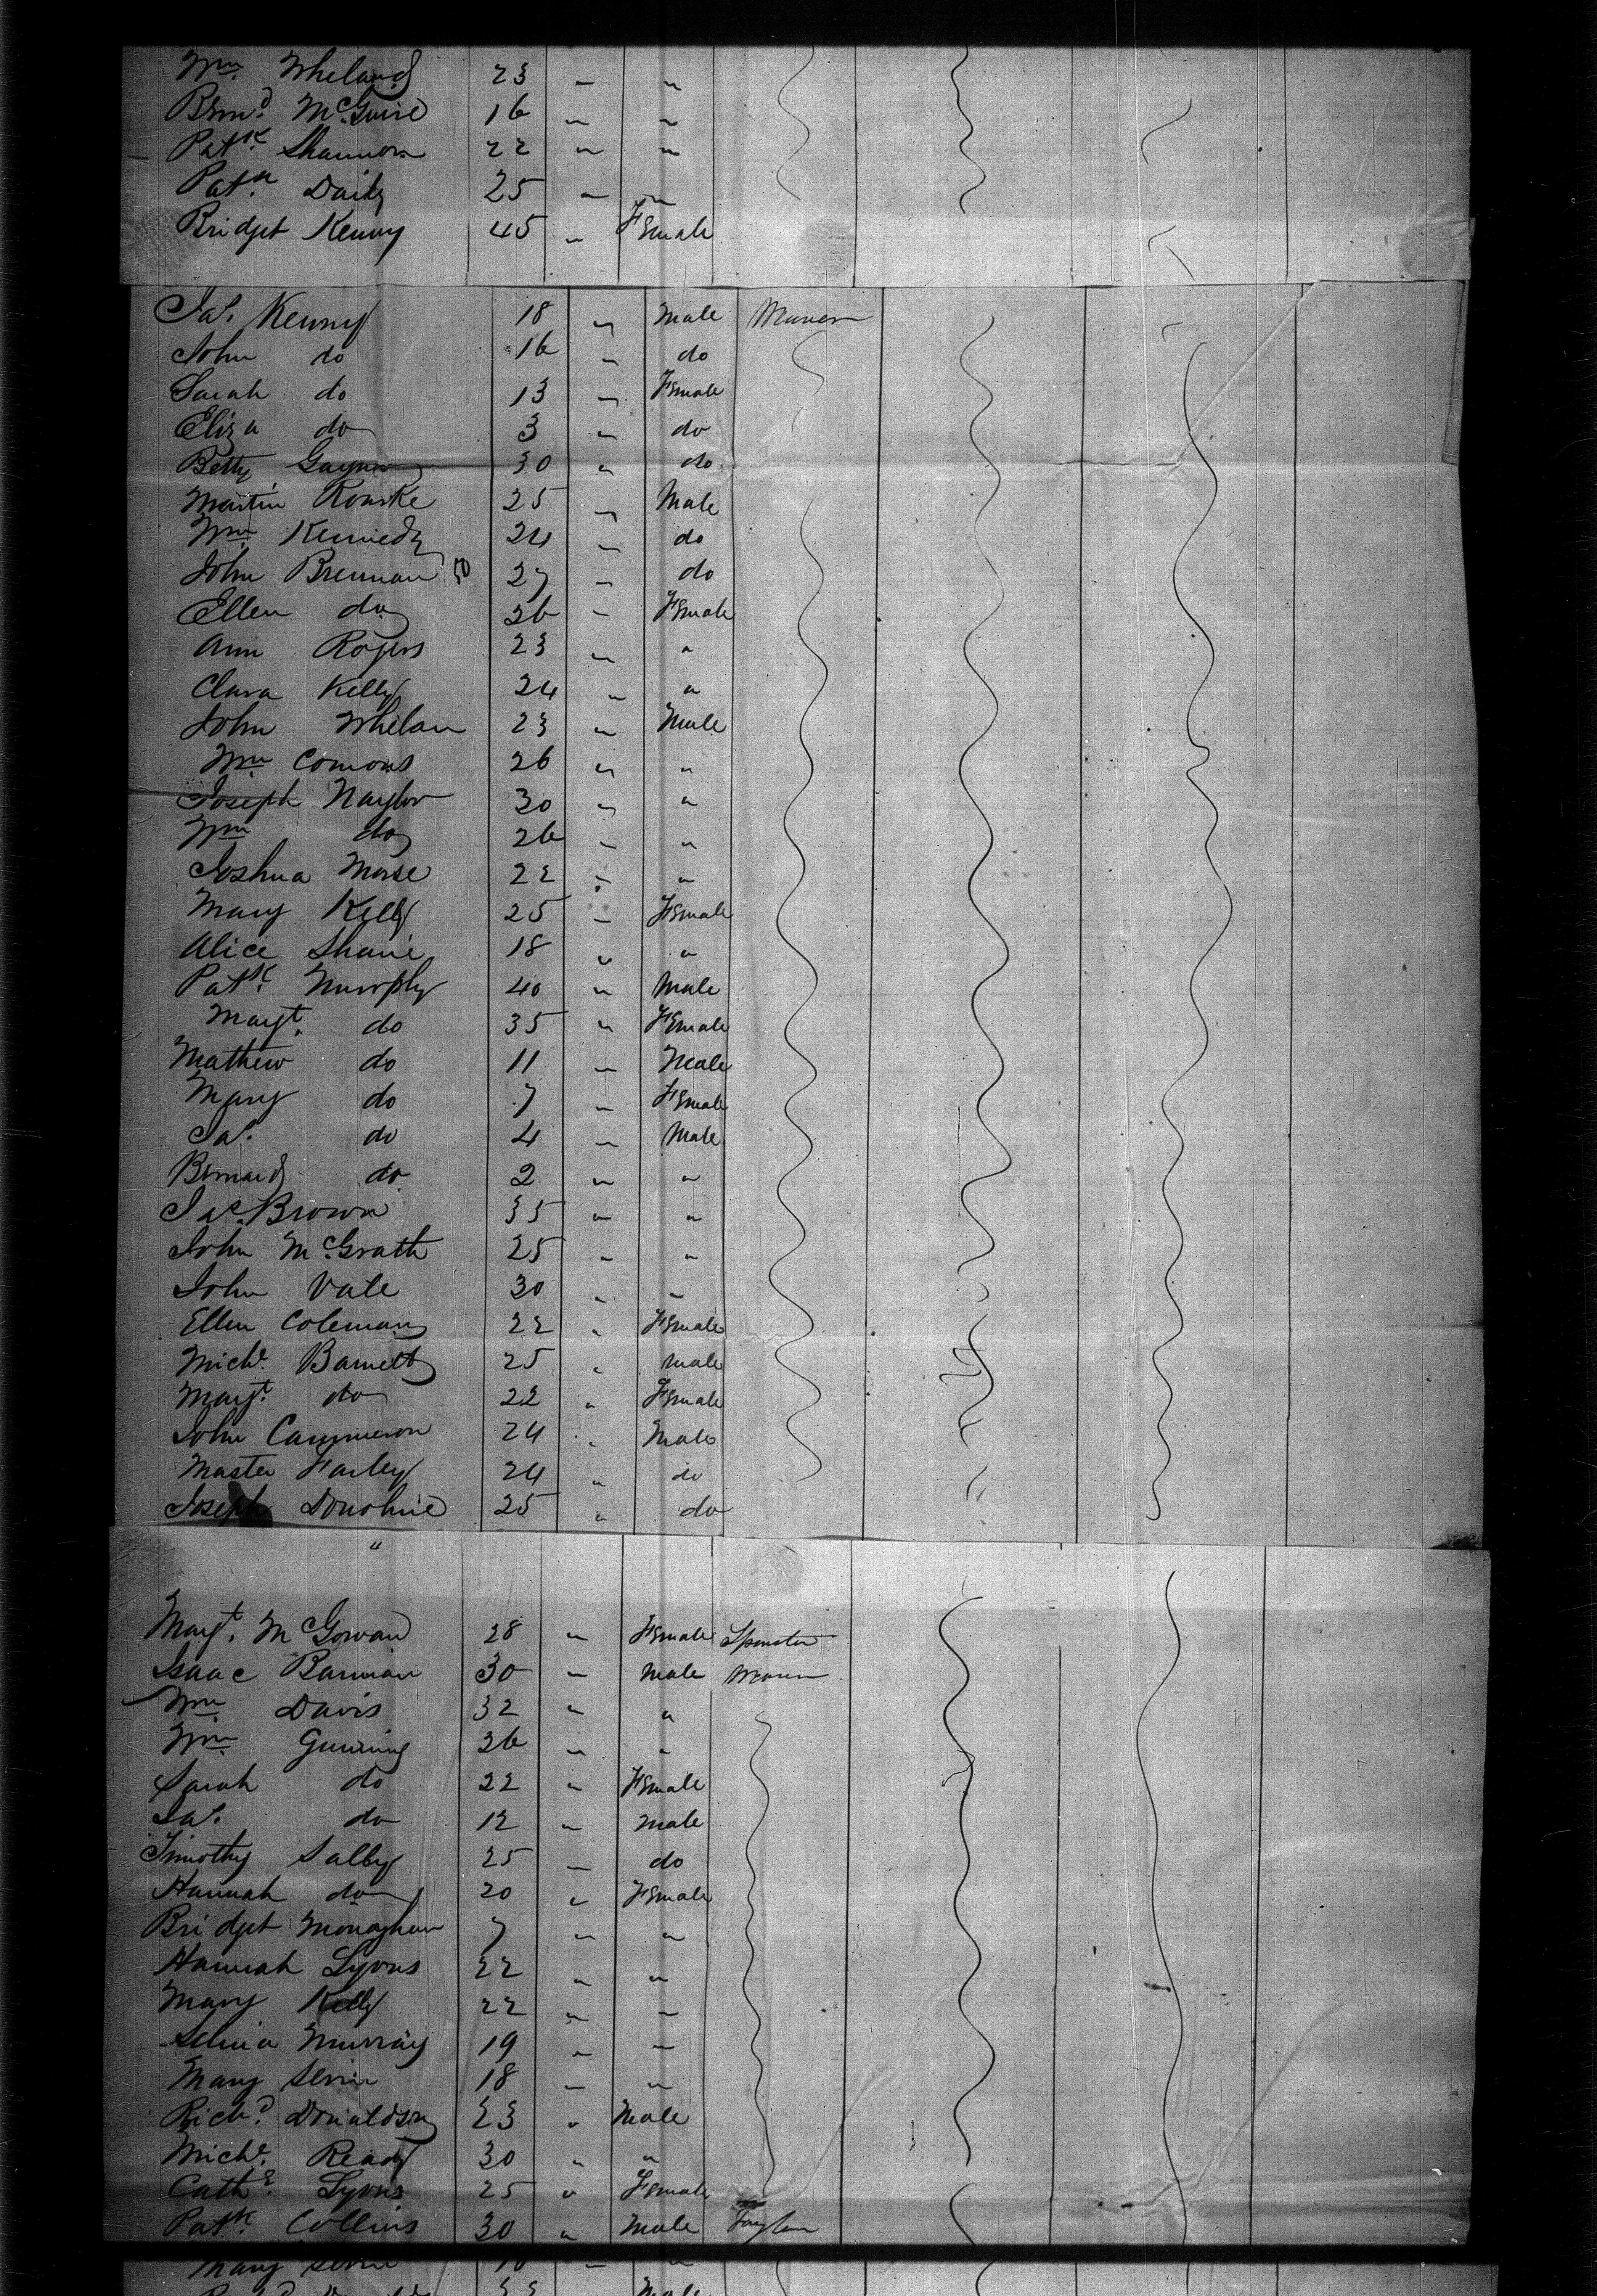 Wm Wheland 23 " "
Bernd McGuire 16 " "
Patk Shannon 22 " "
Patk Daily 25 " "
Bridget Kenny 45 " Female
Jas. Kenny 18 " Male
John do 16 " do
Sarah do 13 " Female
Eliza do 3 " do
Betty Gaynor 30 " do
Martin Rourke 25 " Male
Wm Kennedy 24 " do
John Brennan 50 27 " do
Ellen do 26 " Female
Ann Rogers 23 " "
Clara Kelly 24 " "
John Whelan 23 " Male
Wm Comons 26 " "
Joseph Naylor 30 " "
Wm do 26 " "
Joshua Morse 22 " "
Mary Kelly 25 " Female
Alice 18 " "
Patk Murphy 40 " Male
Magt. do 35 " Female
Mathew do 11 " Male
Mary do 7 " Female
Jas. do 4 " Male
Bernard do 2 " "
Jas. Brown 35 " "
John McGrath 25 " "
John Vale 30 " "
Ellen Coleman 22 " Female
Michl. Barnett 25 " Male
Magt. do 22 " Female
John Cammeron 24 " Male
Master Farley 24 " do
Joseph Donohue 25 " do
"
Magt. McGowan 28 " Female Spinster
Isaac Bannan 30 " Male
Wm Davis 32 " "
Wm Gunning 26 " "
Sarah do 22 " Female
Jas. do 12 " Male
Timothy Salby 25 " do
Hannah do 20 " Female
Bridget Monaghan 7 " "
Hannah Lyons 22 " "
Mary Kelly 22 " "
Murray 19 " "
Mary 18 " "
Richd. Donaldson 23 " Male
Michl. Ready 30 " "
Cathe. Lyons 25 " Female
Patk. Collins 30 " Male
Mary